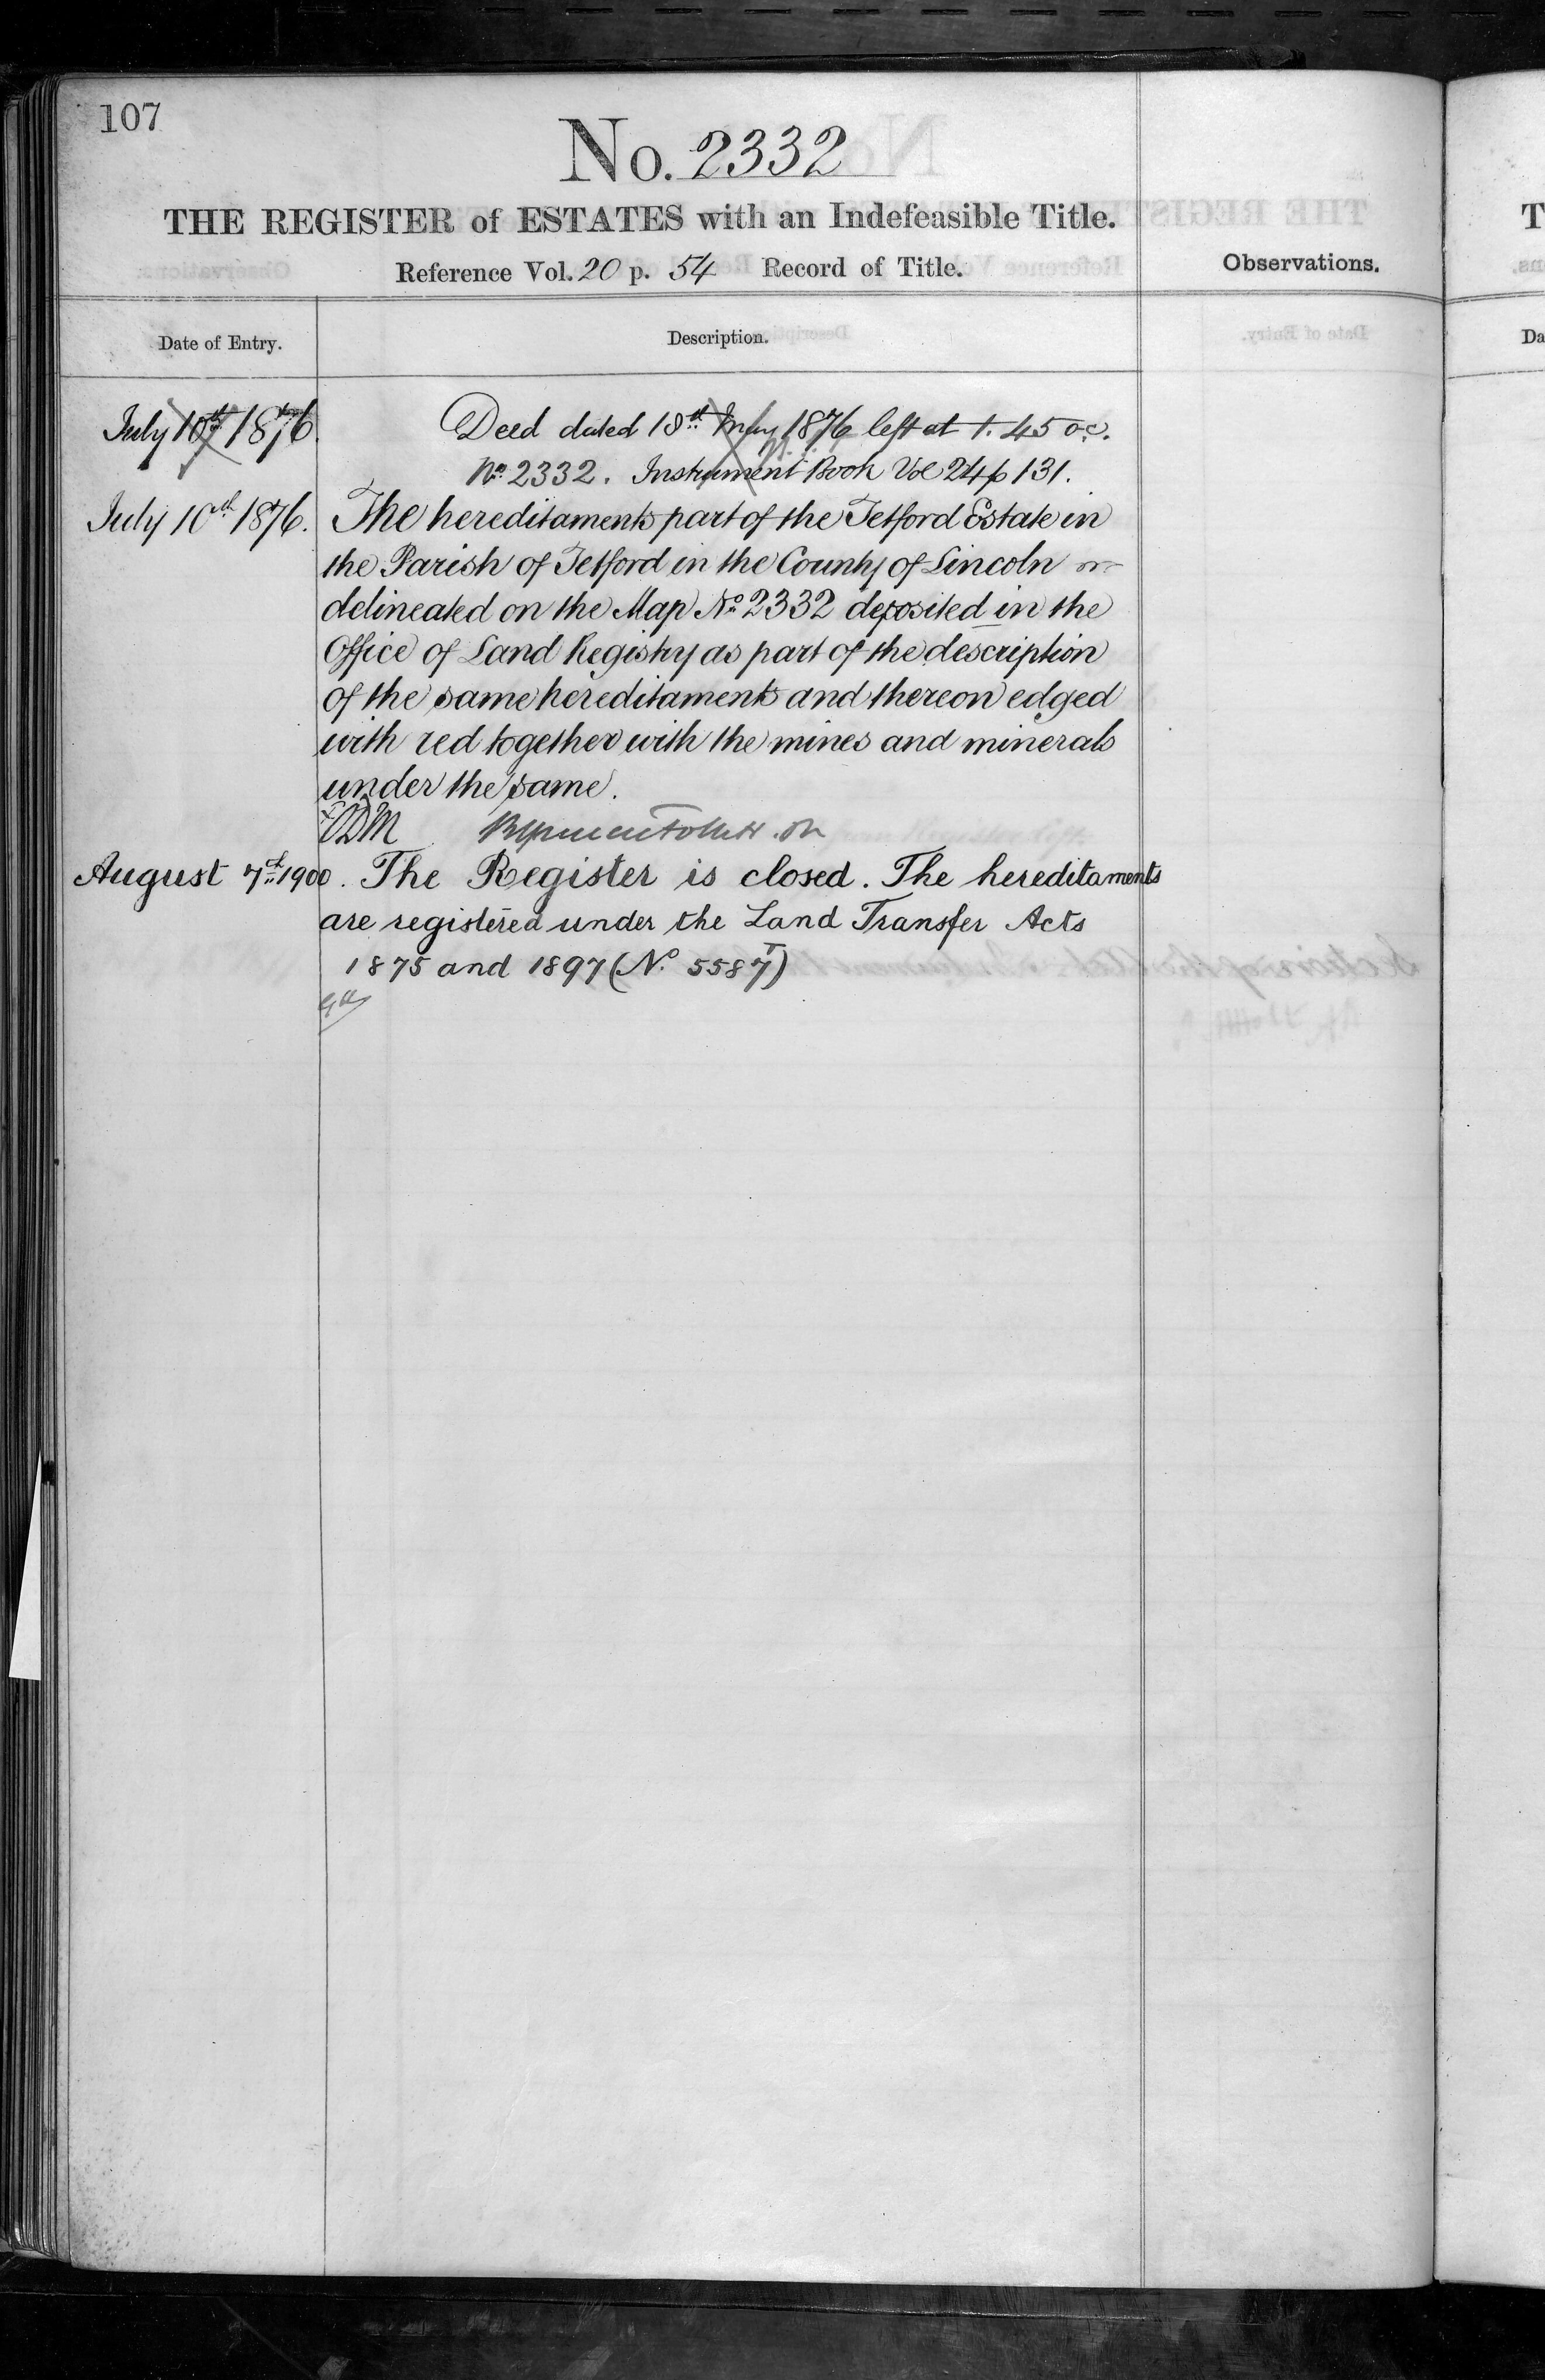 107
No. 2332
THE REGISTER of ESTATES with an Indefeasible Title.
Reference Vol. 20 p. 54 Record of Title.
Observations.
Date of Entry.
Description.
July 10th 1876.
Deed dated 18th May 1876 left at 1.45 oc.
No. 2332. Instrument Book Vol 24 p 131.
July 10th 1876.
The hereditaments part of the Tetford Estate in
the Parish of Tetford in the County of Lincoln
delineated on the Map No 2332 deposited in the
Office of Land Registry as part of the description
of the same hereditaments and thereon edged
with red together with the mines and minerals
under the same.
August 7th 1900.
The Register is closed. The hereditaments
are registered under the Land Transfer Acts
1875 and 1897 (No. 5587)
T
Da